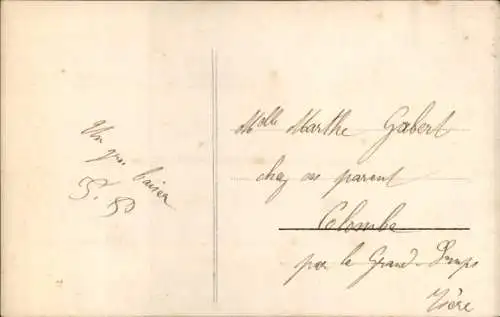 Un gros baiser
Melle Marthe Gabert
chez ses parent
Colombe
par le Grand-Lemps
Isère